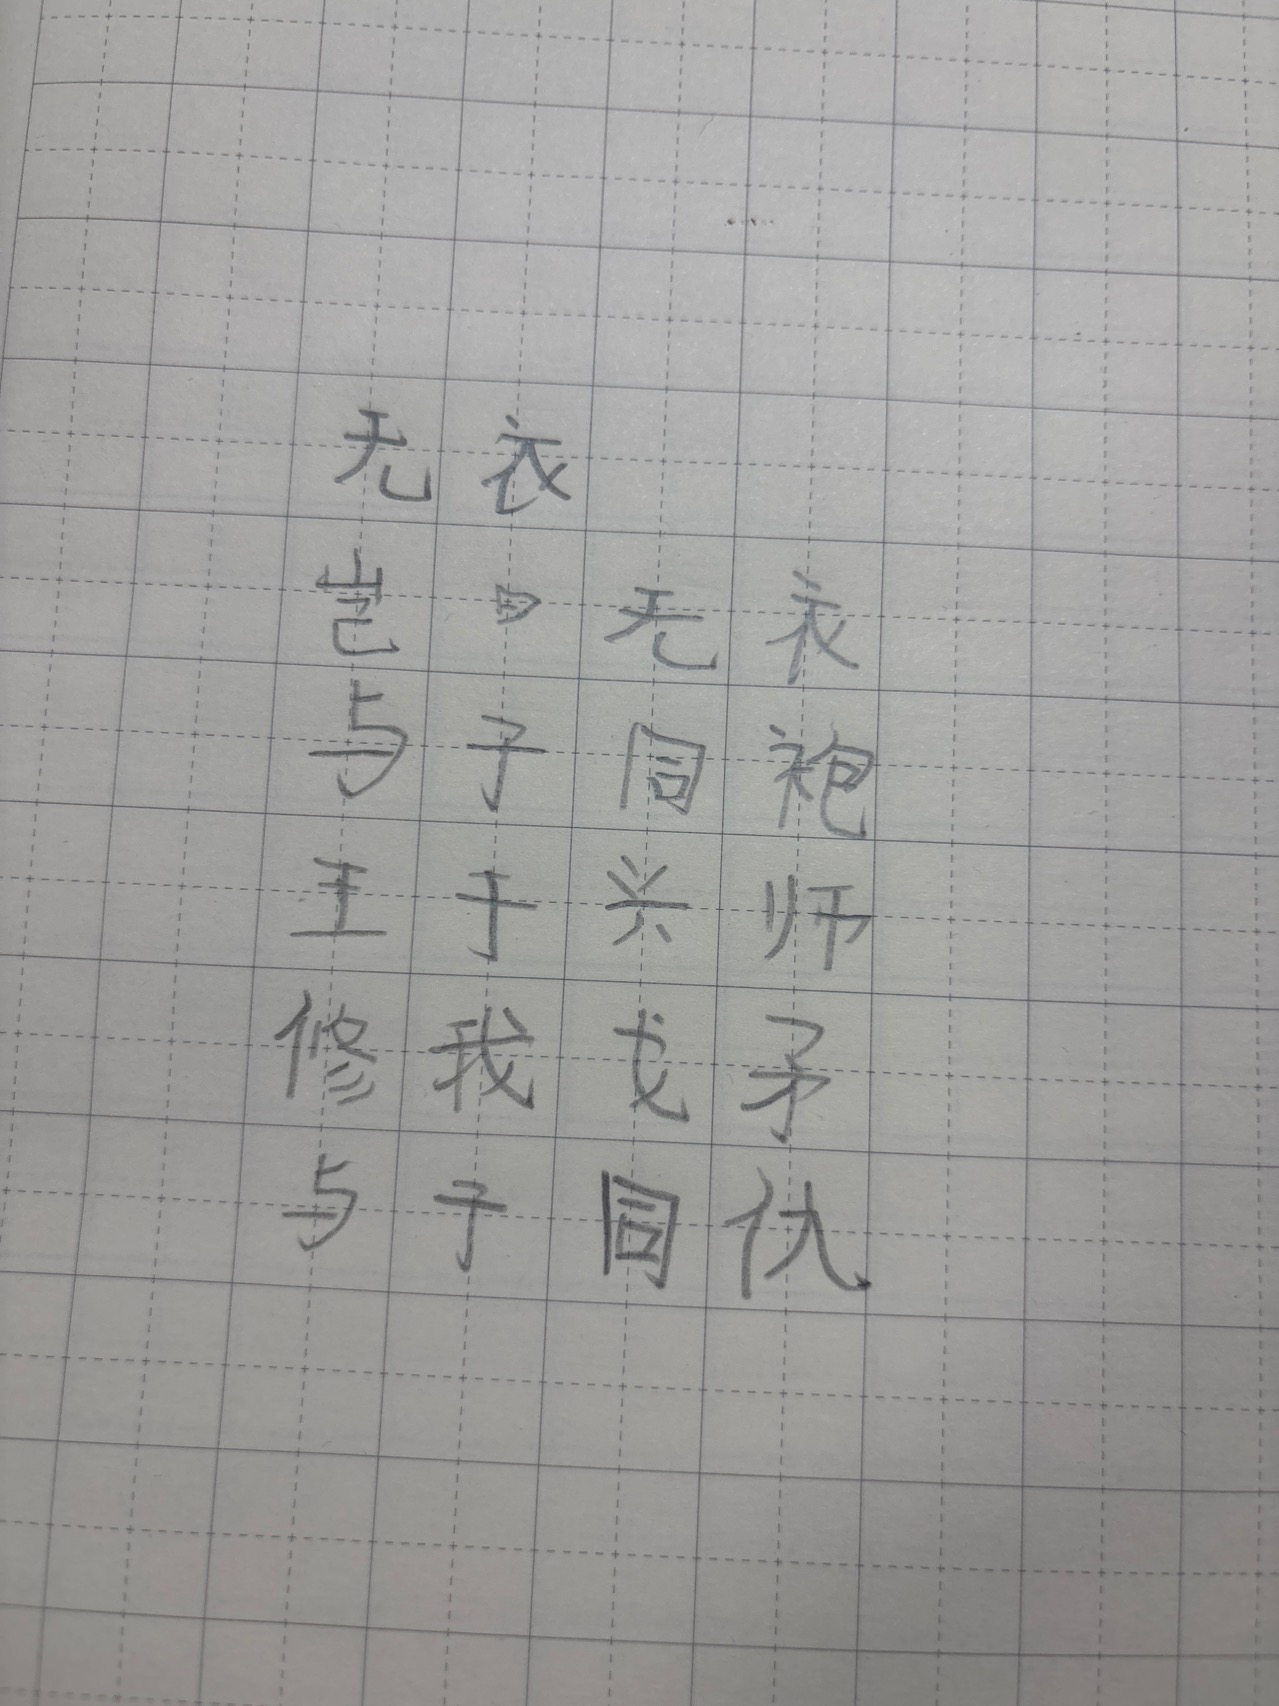 无衣
岂曰无衣
与子同袍
王于兴师
修我戈矛
与子同仇